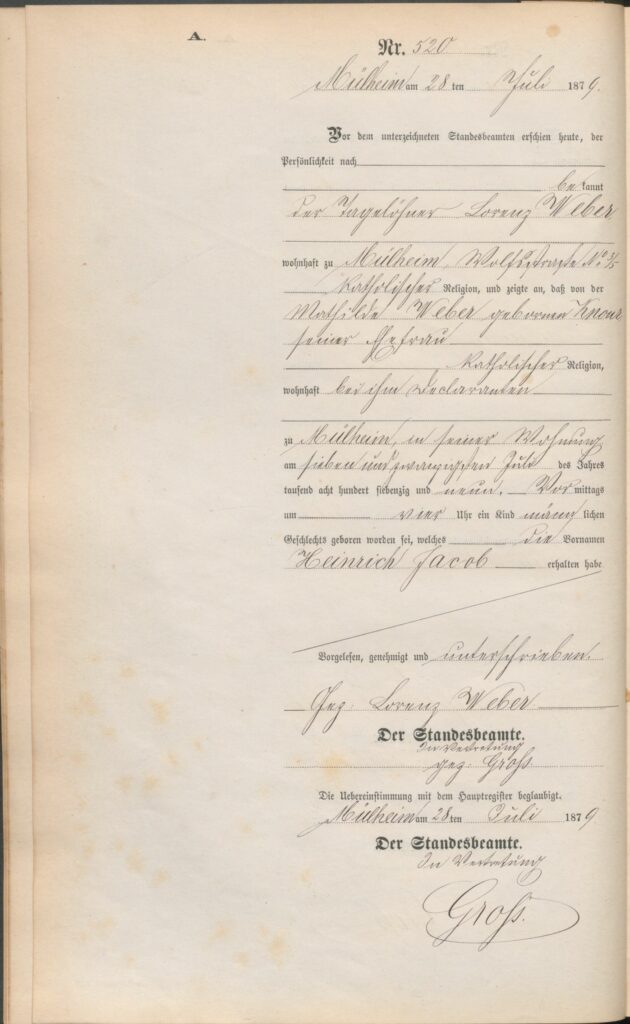 A.
Nr. 520
Mülheim am 28 ten Juli 1879.
Vor dem unterzeichneten Standesbeamten erschien heute, der
Persönlichkeit nach
be kannt
der Tagelöhner Lorenz Weber
wohnhaft zu Mülheim, Wolfsstraße No
katholischer Religion, und zeigte an, daß von der
Mathilde Weber geborenen
seiner Ehefrau
katholischer Religion,
wohnhaft bei ihm Declaranten
zu Mülheim, in seiner Wohnung
am sieben und zwanzigsten Juli des Jahres
tausend acht hundert siebenzig und neun, Vor mittags
um vier Uhr ein Kind männ lichen
Geschlechts geboren worden sei, welches die Vornamen
Heinrich Jacob erhalten habe
Vorgelesen, genehmigt und unterschrieben.
Gez. Lorenz Weber
Der Standesbeamte.
In Vertretung
gez. Groß.
Die Uebereinstimmung mit dem Hauptregister beglaubigt.
Mülheim am 28 ten Juli 1879
Der Standesbeamte.
In Vertretung
Groß.